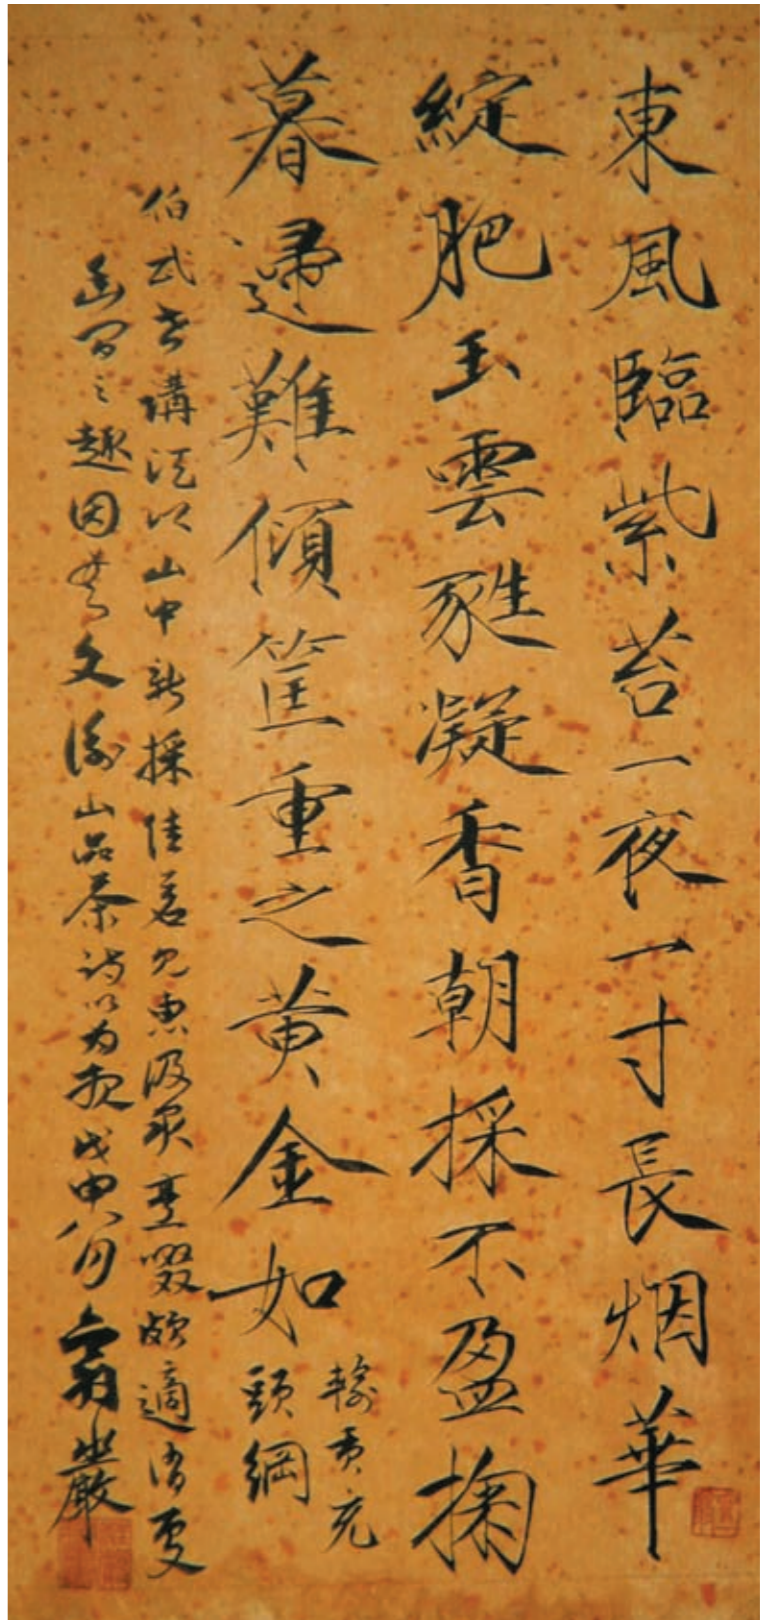 東風臨紫苔一夜一寸長烟華
綻肥玉雲蕤凝香朝採不盈掬
暮歸難傾筐重之黄金如
輸貢充
頭綱
伯武講以山中新採佳茗見惠汲泉啜頗適
之趣因書文衡山品茶詩以為報戊申八月嚴